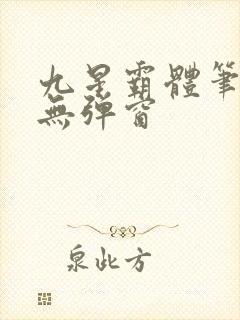 九星霸體筆
無彈窗
泉此方